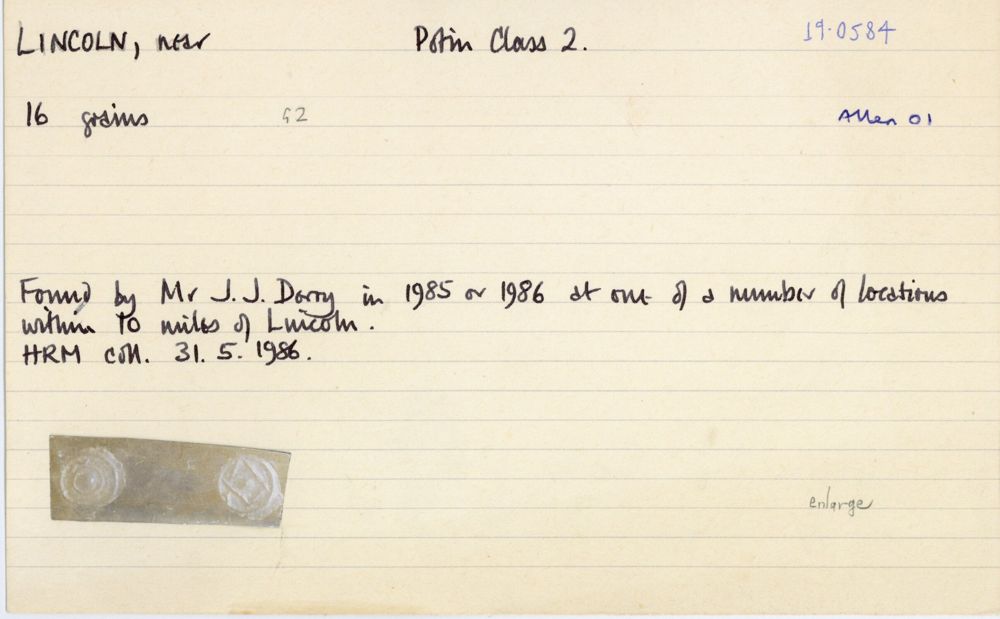 LINCOLN, near Potin Class 2. 19.0584
16 grains G2 Allen 01
Found by Mr J. J. Dorry in 1985 or 1986 at one of a number of locations
within 10 miles of Lincoln.
HRM coll. 31. 5. 1986.
enlarge